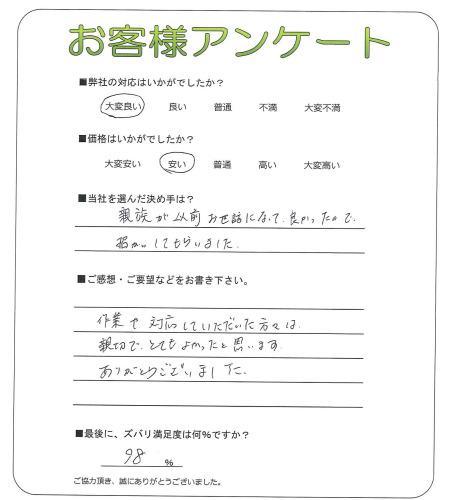 お客様アンケート
■弊社の対応はいかがでしたか？
大変良い 良い 普通 不満 大変不満
■価格はいかがでしたか？
大変安い 安い 普通 高い 大変高い
■当社を選んだ決め手は？
親族が以前お世話になって、良かったので、
してもらいました。
■ご感想・ご要望などをお書き下さい。
作業や対応していただいた方々は、
親切で、とてもよかったと思います。
ありがとうございました。
■最後に、ズバリ満足度は何%ですか？
98 %
ご協力頂き、誠にありがとうございました。